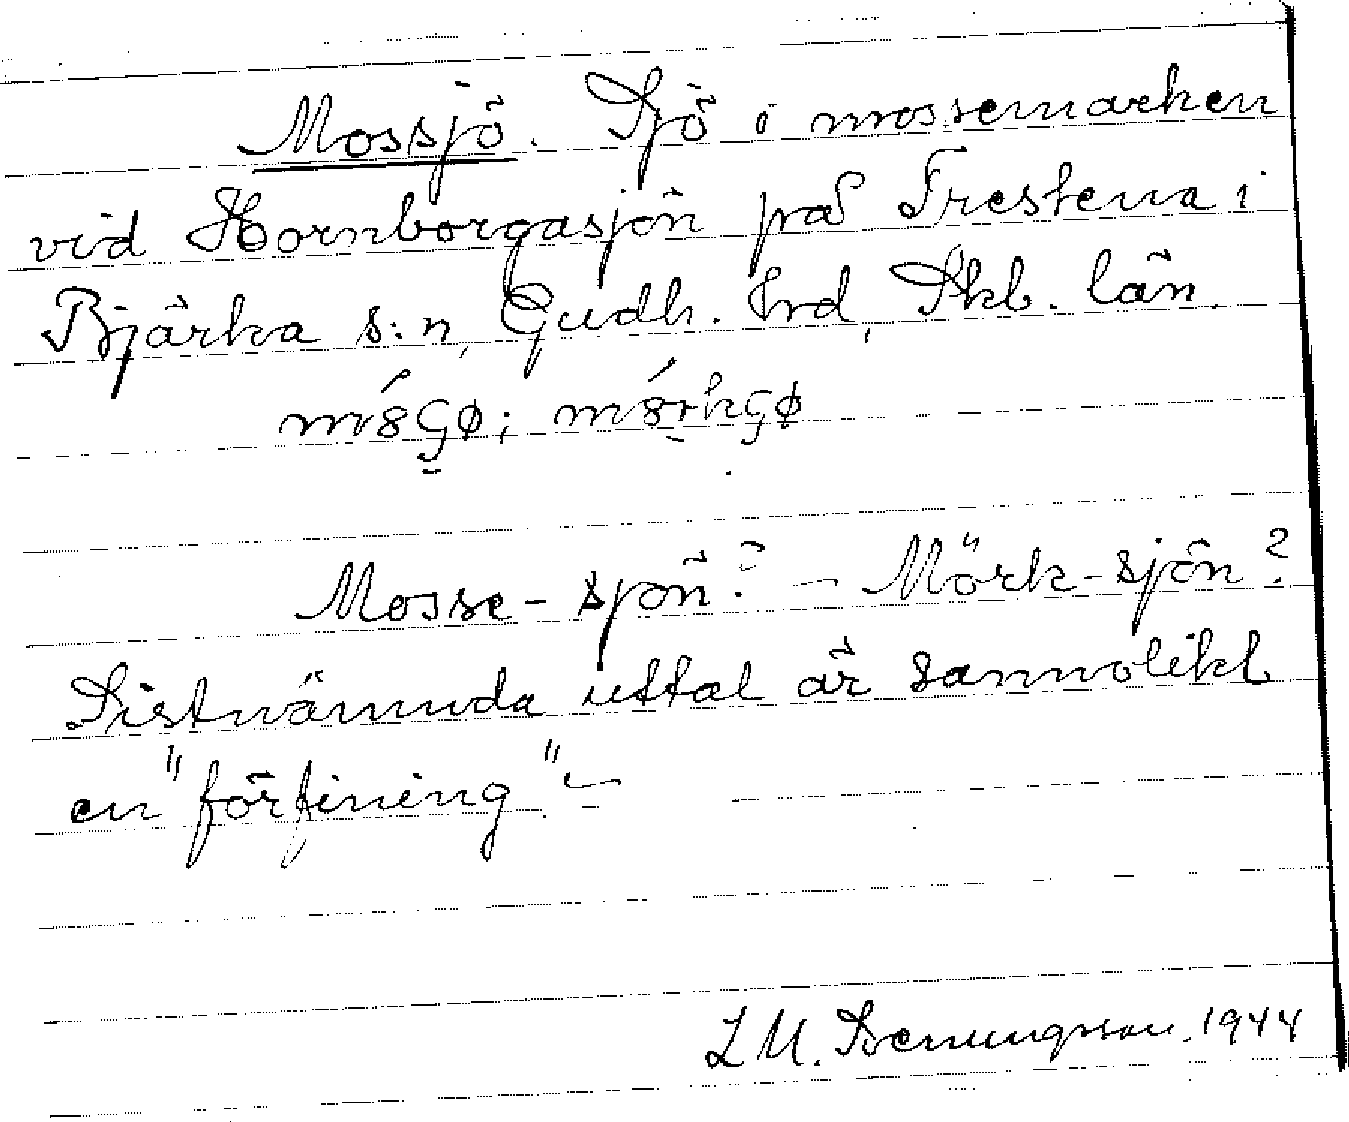 Mossjö. Sjö i mossemarken
vid Hornborgasjön på Trestena i
Bjärka s:n, Gudh. hrd, Skb. län.
Mosse-sjön? — Mörk-sjön?
Sistnämnda uttal är sannolikt
en "förfining" —
L M. 1944